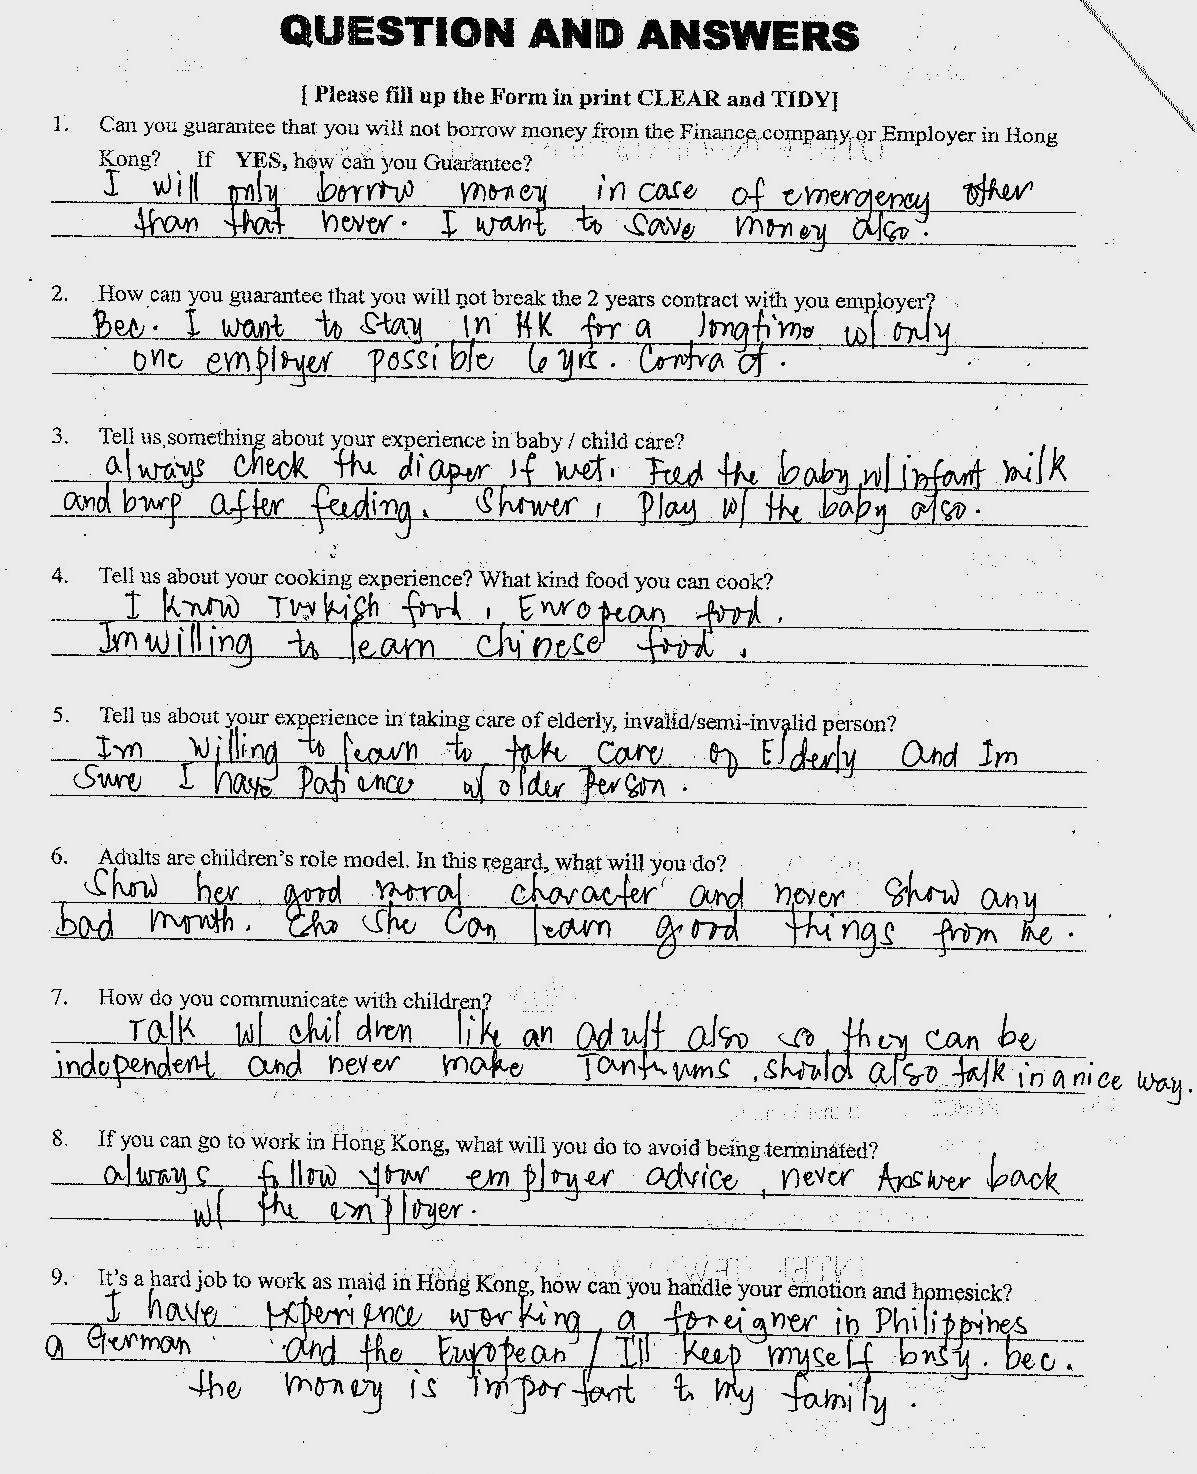 QUESTION AND ANSWERS
[ Please fill up the Form in print CLEAR and TIDY]
1. Can you guarantee that you will not borrow money from the Finance company or Employer in Hong
Kong? If YES, how can you Guarantee?
I will only borrow money in case of emergency other
than that never. I want to save money also.
2. How can you guarantee that you will not break the 2 years contract with you employer?
Bec. I want to stay in HK for a longtime w/ only
one employer possible 6 yrs. Contract.
3. Tell us something about your experience in baby / child care?
always check the diaper if wet. Feed the baby w/ infant milk
and burp after feeding. Shower, Play w/ the baby also.
4. Tell us about your cooking experience? What kind food you can cook?
I know Turkish food, European food.
Im willing to learn chinese food.
5. Tell us about your experience in taking care of elderly, invalid/semi-invalid person?
Im willing to learn to take care of Elderly and Im
sure I have Patience w/ older Person.
6. Adults are children's role model. In this regard, what will you do?
Show her good moral character and never show any
bad mouth. she can learn good things from me.
7. How do you communicate with children?
Talk w/ children like an adult also so they can be
independent and never make Tantrums, should also talk in a nice way.
8. If you can go to work in Hong Kong, what will you do to avoid being terminated?
always follow your employer advice, never Answer back
w/ the employer.
9. It's a hard job to work as maid in Hong Kong, how can you handle your emotion and homesick?
I have Experience working a foreigner in Philippines
a German and the European / I'll keep myself busy. bec.
the money is important to my family.